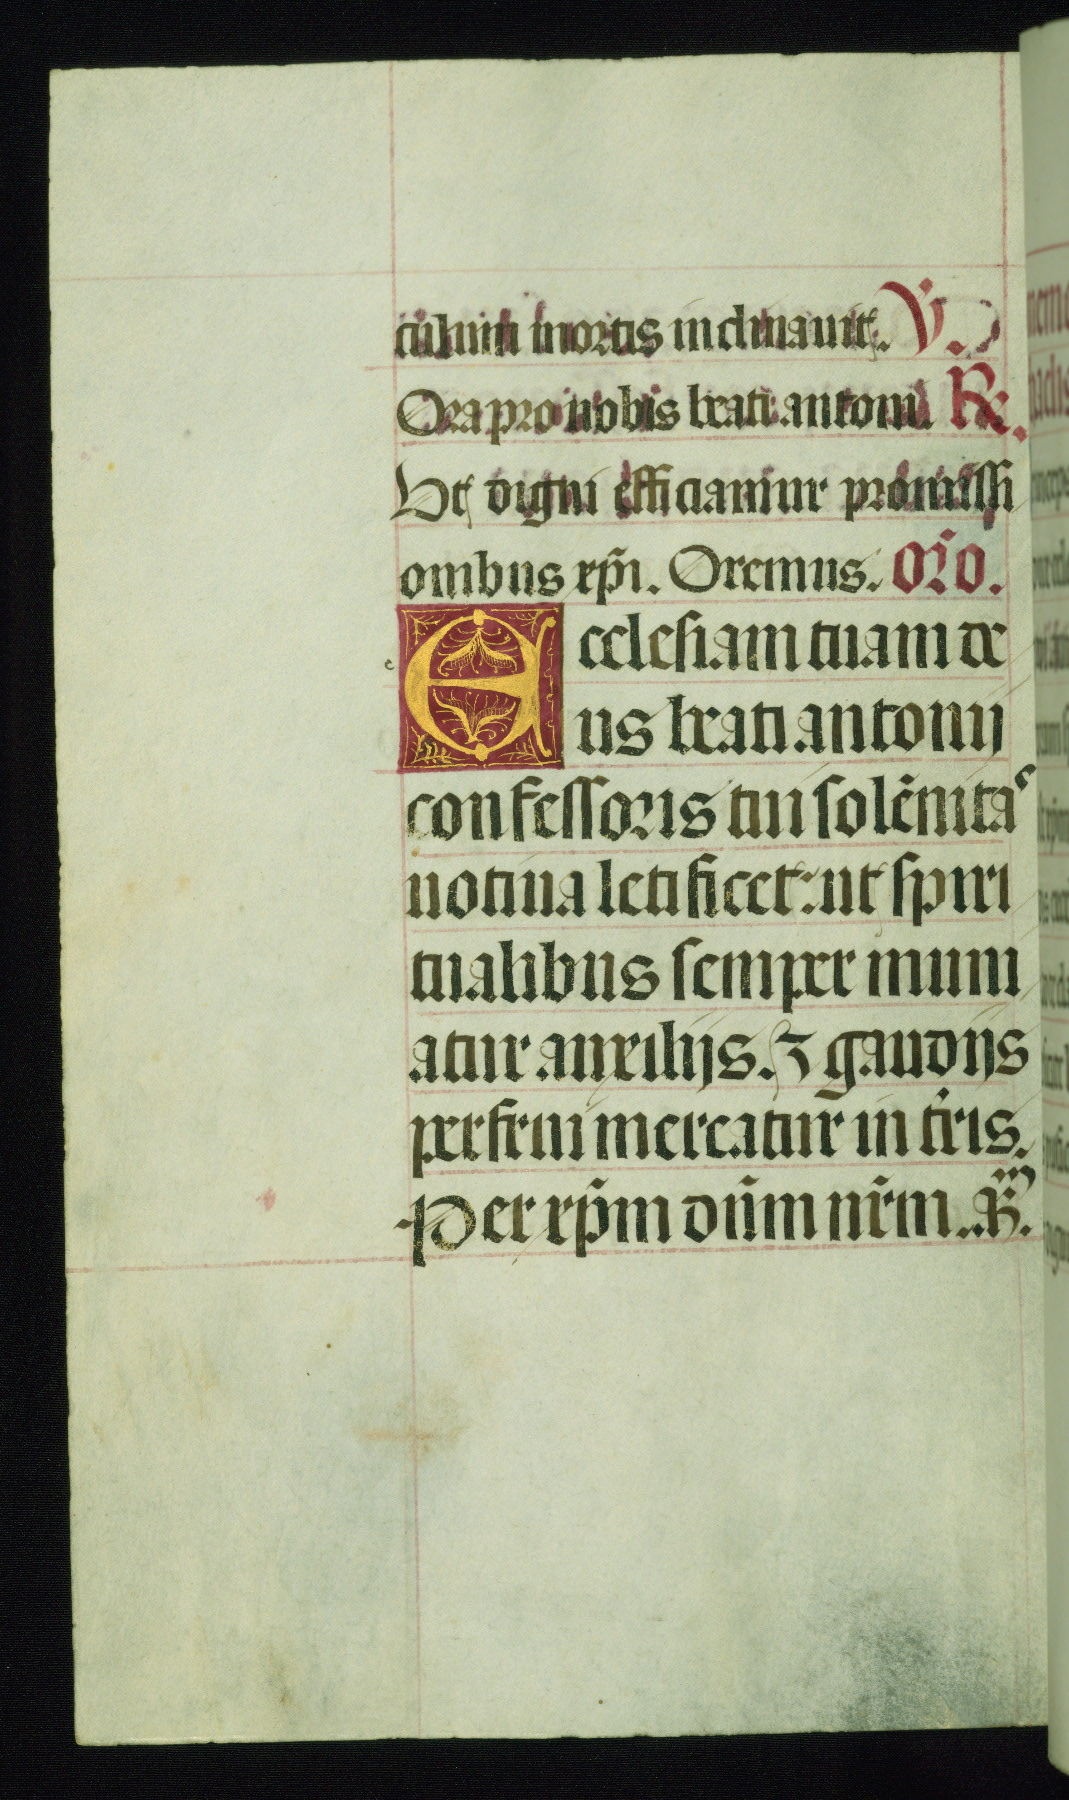 culum mortis inclinauit. V.
Ora pro nobis beati antoni. R.
Ut digni efficiamur promissi
onibus xp̄i. Oremus. Oŕo.
Ecclesiam tuam de
us beati antonij
confessoris tui solēnitas
uotiua letificet: ut spiri
tualibus semper muni
atur auxilijs. ⁊ gaudijs
perfrui mereatur in t̄ris.
Per xp̄m dn̄m nr̄m. R.